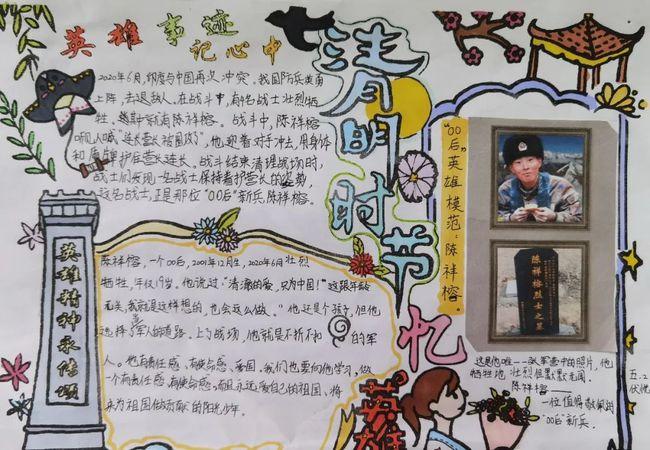 英雄事迹
记心中
清明时节
忆
英雄
2020年6月,印度与中国再次冲突,我国防兵英勇
上阵,去退敌人,在战斗中,有4名战士壮烈牺
牲,其中就有陈祥榕。战斗中,陈祥榕
听人喊"连长营长被围攻",他迎着对手冲去,用身体
和盾牌护住营长连长。战斗结束清理战场时,
战士们发现一名战士保持着护营长的姿势,
这名战士,正是那位"00后"新兵陈祥榕。
英雄精神永传颂
陈祥榕,一个00后,2001年12月生,2020年6月壮烈
牺牲,年仅19岁。他说过"清澈的爱,只为中国!"这跟年龄
无关,我就是这样想的,也会这么做。"他还是个孩子,但他
选择了军人的道路。上了战场,他就是不折不扣的军
人。他有责任感、有使命感、爱国。我们也要向他学习,做
一个有责任感、有使命感,而且永远爱自己的祖国、将
来为祖国做贡献的阳光少年。
"00后"英雄模范:陈祥榕。
陈祥榕烈士之墓
这是他唯一一张军营中的照片,他
牺牲地壮烈但默默无闻。
陈祥榕
一位值得敬佩的
"00后"新兵。
五.2